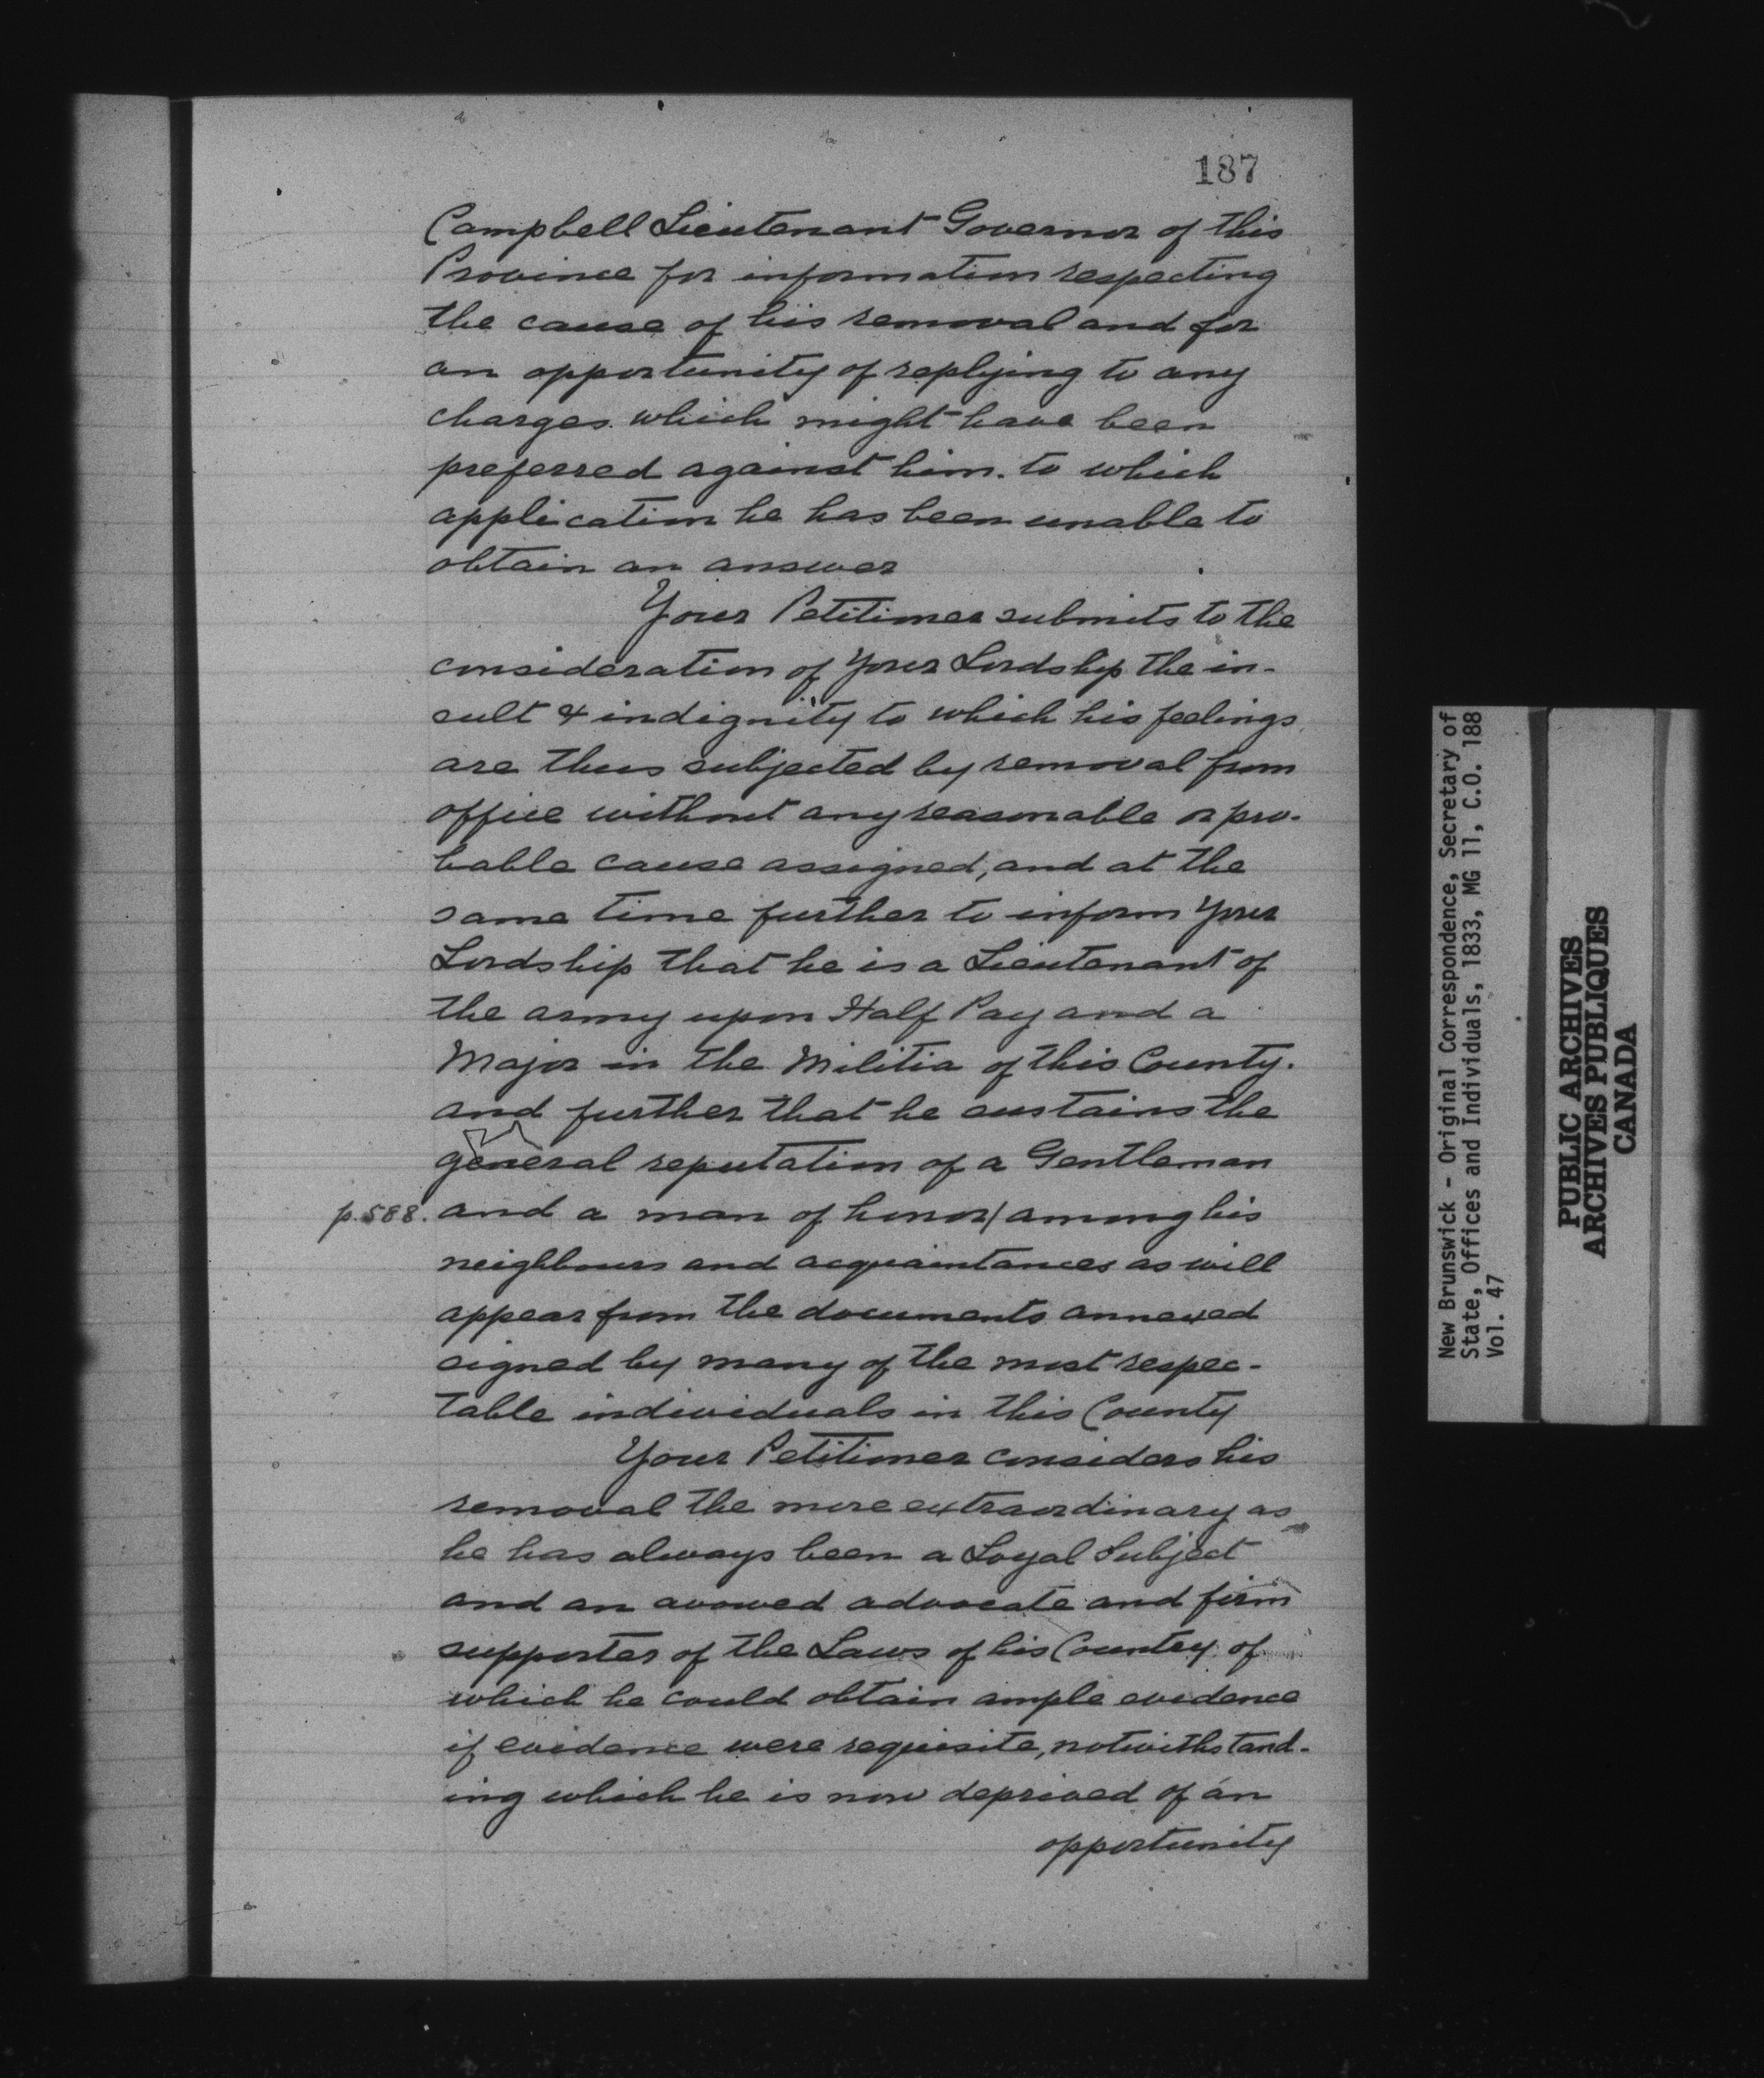 187
Campbell Lieutenant Governor of this
Province for information respecting
the cause of his removal and for
an opportunity of replying to any
charges which might have been
preferred against him. to which
application he has been unable to
obtain an answer
Your Petitioner submits to the
consideration of Your Lordship the in-
sult & indignity to which his feelings
are thus subjected by removal from
office without any reasonable or pro-
bable cause assigned, and at the
same time further to inform Your
Lordship that he is a Lieutenant of
the army upon Half Pay and a
Major in the Militia of this County.
and further that he sustains the
general reputation of a Gentleman
p.588. and a man of honor/among his
neighbours and acquaintances as will
appear from the documents annexed
signed by many of the most respec-
table individuals in this County
Your Petitioner considers his
removal the more extraordinary as
he has always been a Loyal Subject
and an avowed advocate and firm
supporter of the Laws of his Country of
which he could obtain ample evidence
if evidence were requisite, notwithstand-
ing which he is now deprived of an
opportunity
New Brunswick - Original Correspondence, Secretary of
State, Offices and Individuals, 1833, MG 11, C.O. 188
Vol. 47
PUBLIC ARCHIVES
ARCHIVES PUBLIQUES
CANADA